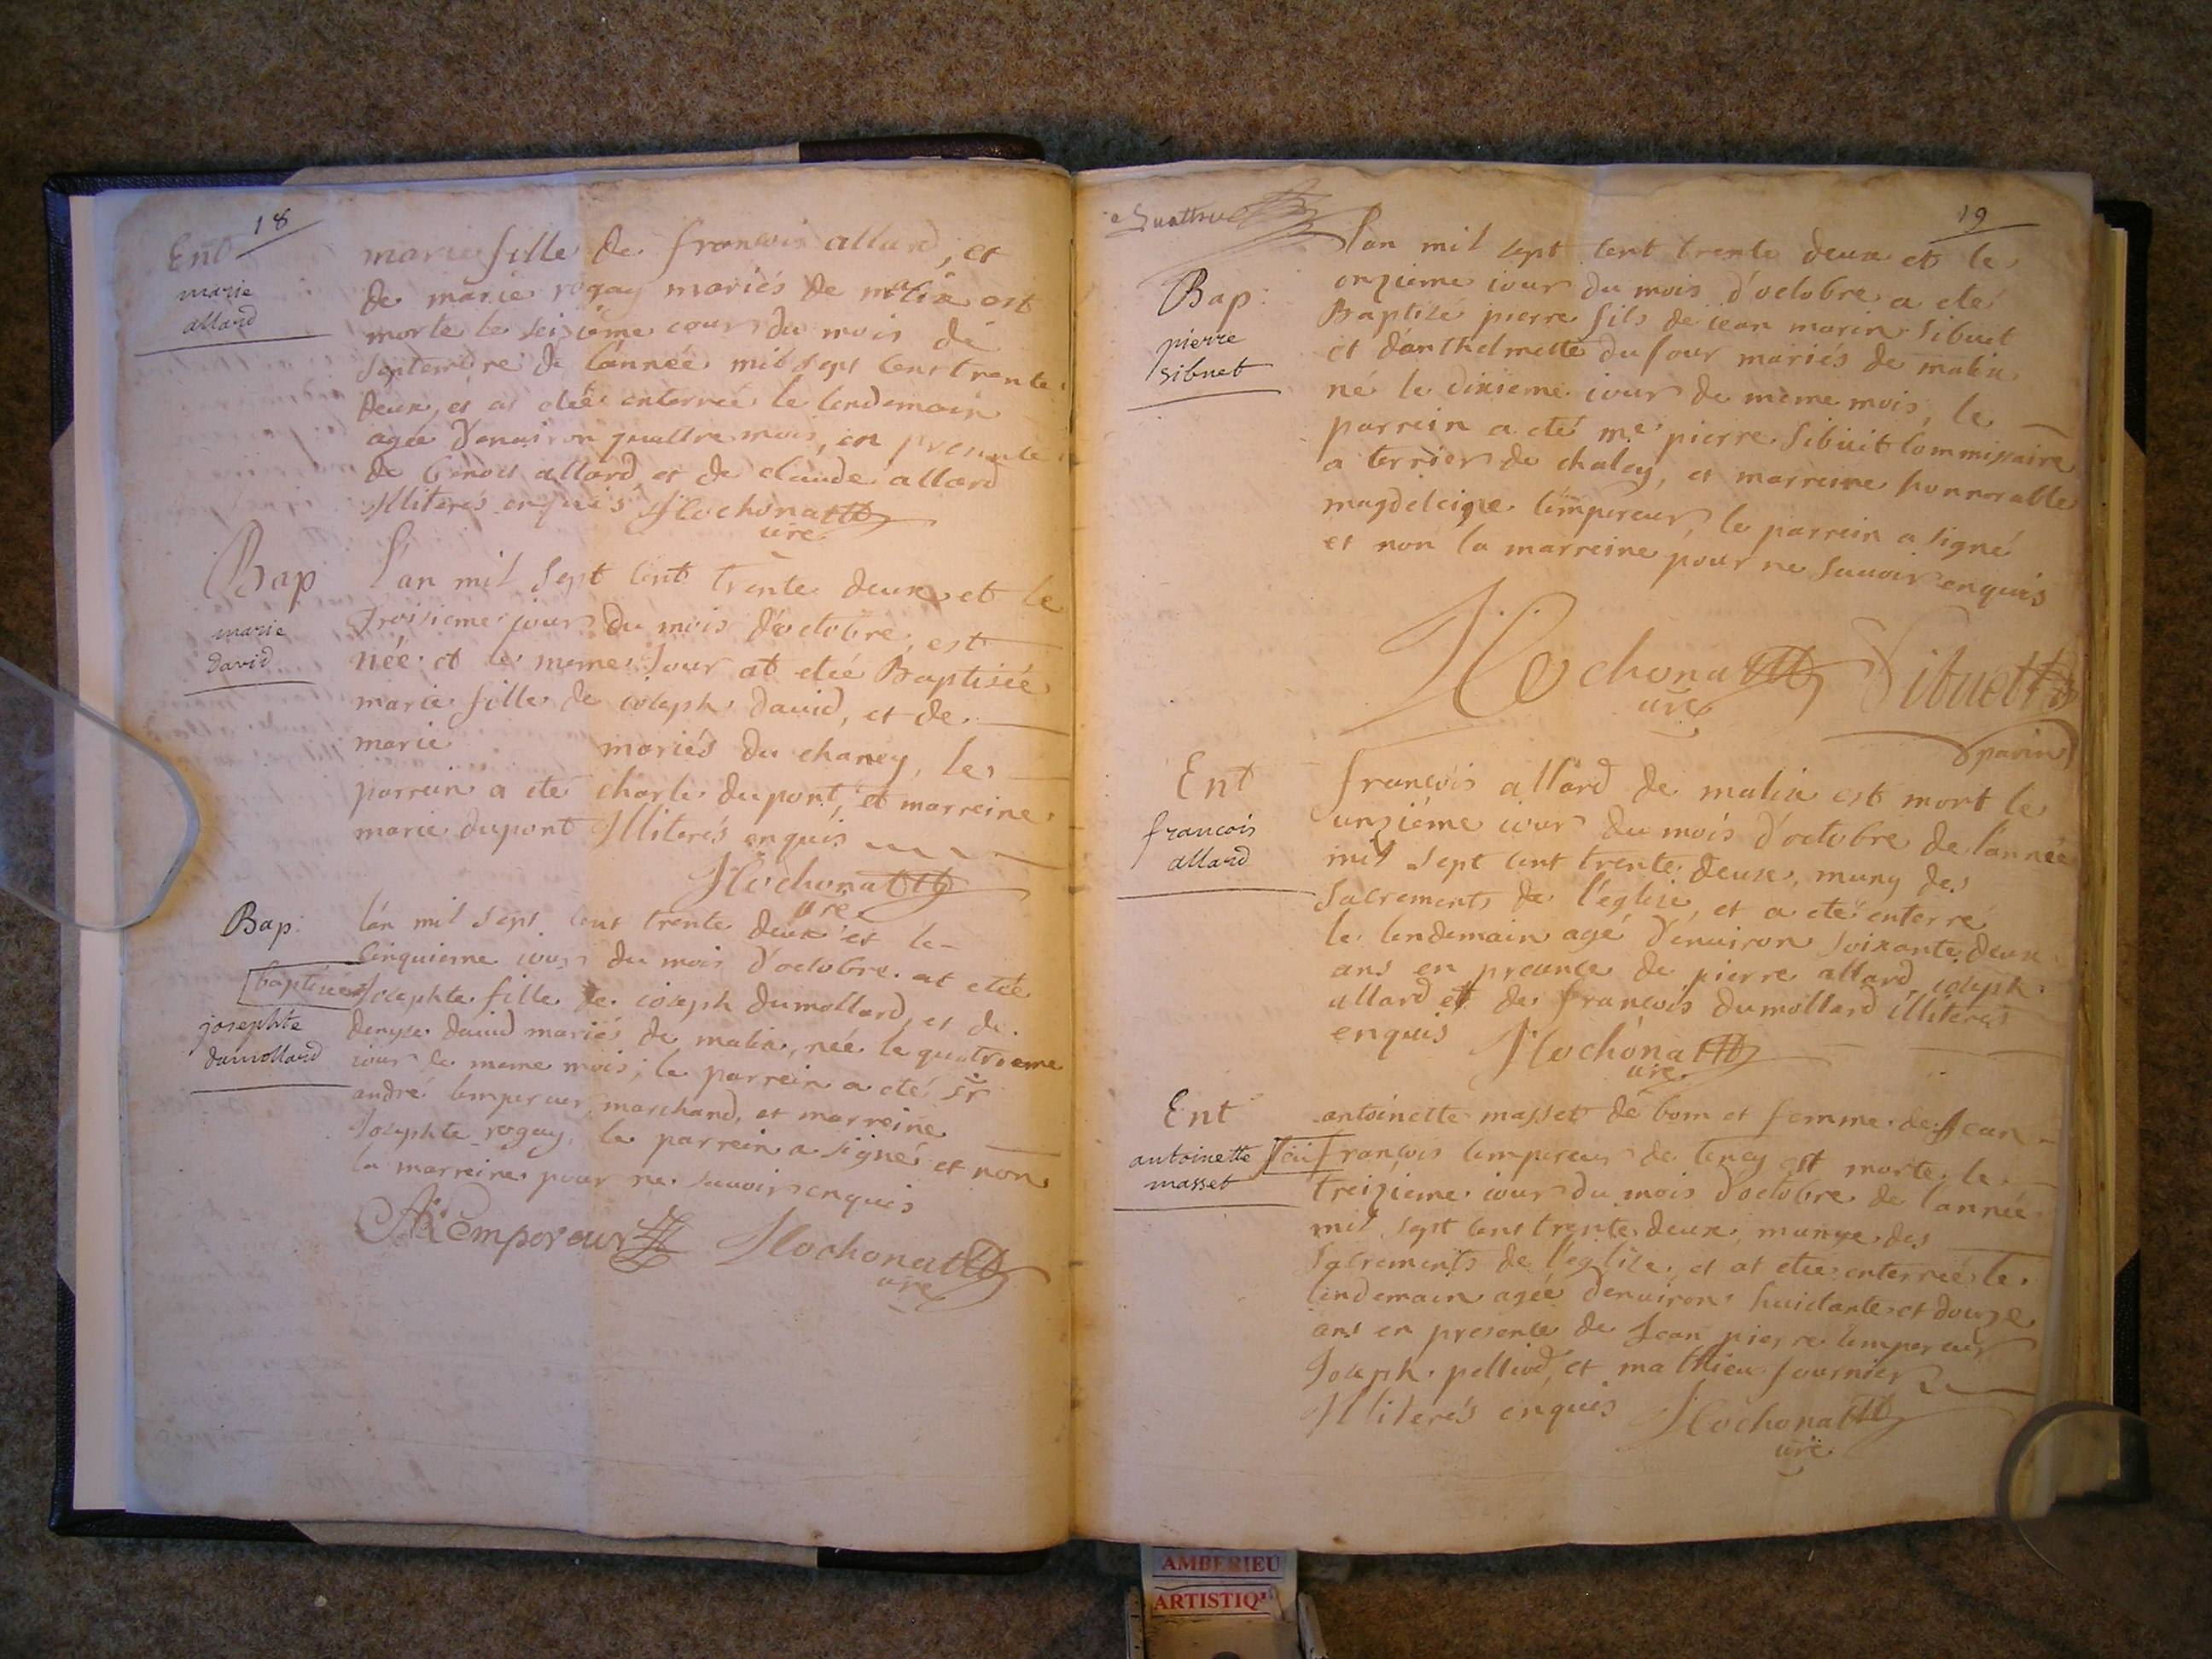 18
Ent
marie
allard
marie fille de françois allard, et
de marie rogay mariés de malix est
morte le seizième jour du mois de
septembre de l'année mil sept cent trente
deux, et at etée enterrée le lendemain
agée d'environ quattre mois, en presence
de benoit allard, et de claude allard
Illiterés enquis Hochonat
curé
Bap
marie
david
L'an mil sept cent trente deux et le
troisieme jour du mois d'octobre, est
née et le meme Jour at etée Baptisée
marie fille de ioseph david, et de
marie mariés du chaney, le
parrain a ete charle dupont, et marreine
marie dupont Illiterés enquis
Hochonat
curé
Bap:
josephte
dumollard
l'an mil sept cent trente deux et le
cinquieme iour du mois d'octobre at etée
baptisée Iosephte fille de ioseph dumollard, et de
denyse david mariés de malix, née le quatrieme
iour de meme mois, le parrein a eté sr
andré lempereur marchand, et marreine
Iosephte rogay, le parrein a signé et non
la marreine pour ne scavoir enquis
A Lempereur Hochonat
curé
quattre
19
Bap:
pierre
sibuet
l'an mil sept cent trente deux et le
onzieme iour du mois d'octobre a eté
Baptisé pierre fils de iean marin Sibuet
et d'anthelmette dufour mariés de malix
né le dixieme iour de meme mois, le
parrein a eté me pierre Sibuit commissaire
a terrier de chaley, et marreine honnorable
magdeleine lempereur, le parrein a signé
et non la marreine pour ne scavoir enquis
Hochonat Sibuet
curé
parin
Ent
francois
allard
françois allard de malix est mort le
unzième iour du mois d'octobre de l'année
mil sept cent trente deux, muny des
sacrements de l'église, et a eté enterré
le lendemain agé d'environ soixante deux
ans en presence de pierre allard, ioseph
allard et de françois dumollard illiterés
enquis Hochonat
curé
Ent
antoinette
masset
antoinette masset de bom et femme de Jean
françois lempereur de tenay est morte le
treizieme iour du mois d'octobre de l'année
mil sept cent trente deux, munye des
sacrements de l'eglise, et at etée enterrée le
lendemain agée d'environ huictante et douze
ans en presence de Jean pierre lempereur
Joseph pelliod, et mathieu fournier
Illiterés enquis Hochonat
curé
AMBERIEU
ARTISTIQ